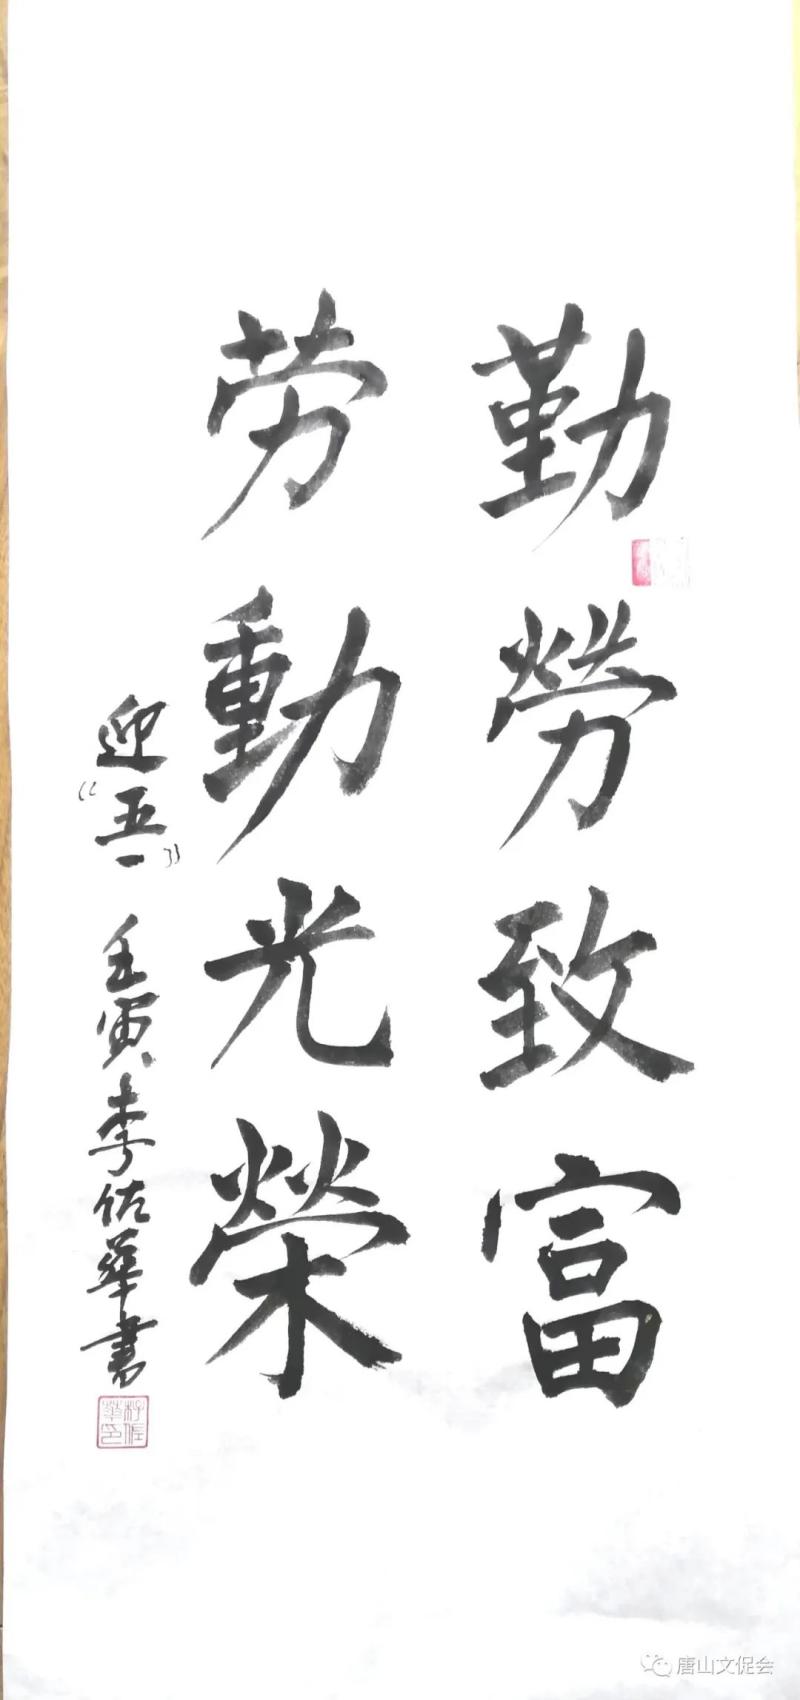 勤勞致富
劳動光榮
迎“五一”壬寅李佐華书
李佐華印
唐山文促会